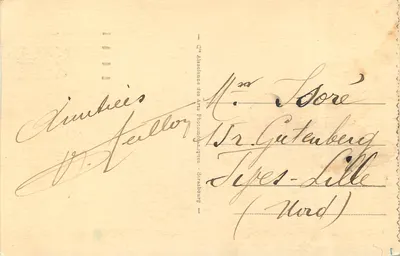 Amitiés
Cie Alsacienne des Arts Photomécaniques - Strasbourg
Mr. Isoré
15 r. Gutenberg
Lille
(Nord)